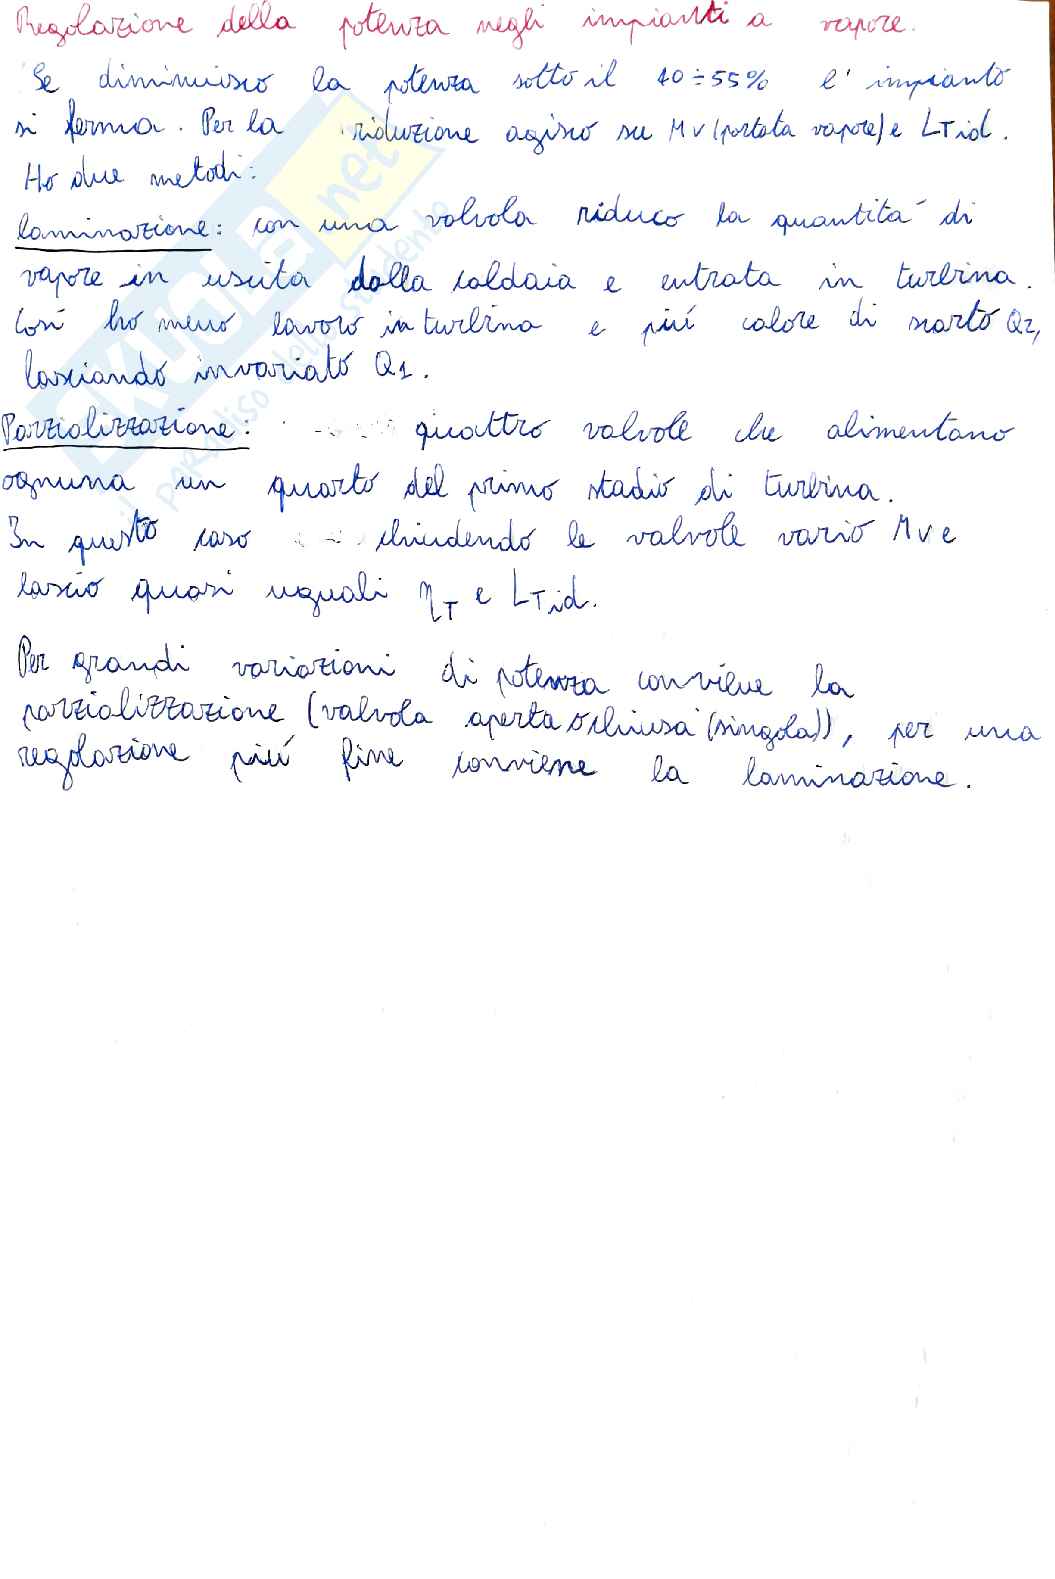 Regolazione della potenza negli impianti a vapore.
Se diminuisco la potenza sotto il 40÷55% l'impianto
si ferma. Per la riduzione agisco su Mv (portata vapore) e LTid.
Ho due metodi:
laminazione: con una valvola riduco la quantitá di
vapore in uscita dalla caldaia e entrata in turbina.
Cosí ho meno lavoro in turbina e piú calore di scarto Q2,
lasciando invariato Q1.
Parzializzazione: quattro valvole che alimentano
ognuna un quarto del primo stadio di turbina.
In questo caso chiudendo le valvole vario Mv e
lascio quasi uguali ηT e LTid.
Per grandi variazioni di potenza conviene la
parzializzazione (valvola aperta o chiusa (singola)), per una
regolazione piú fine conviene la laminazione.
SKUOLA.net
il paradiso dello studente